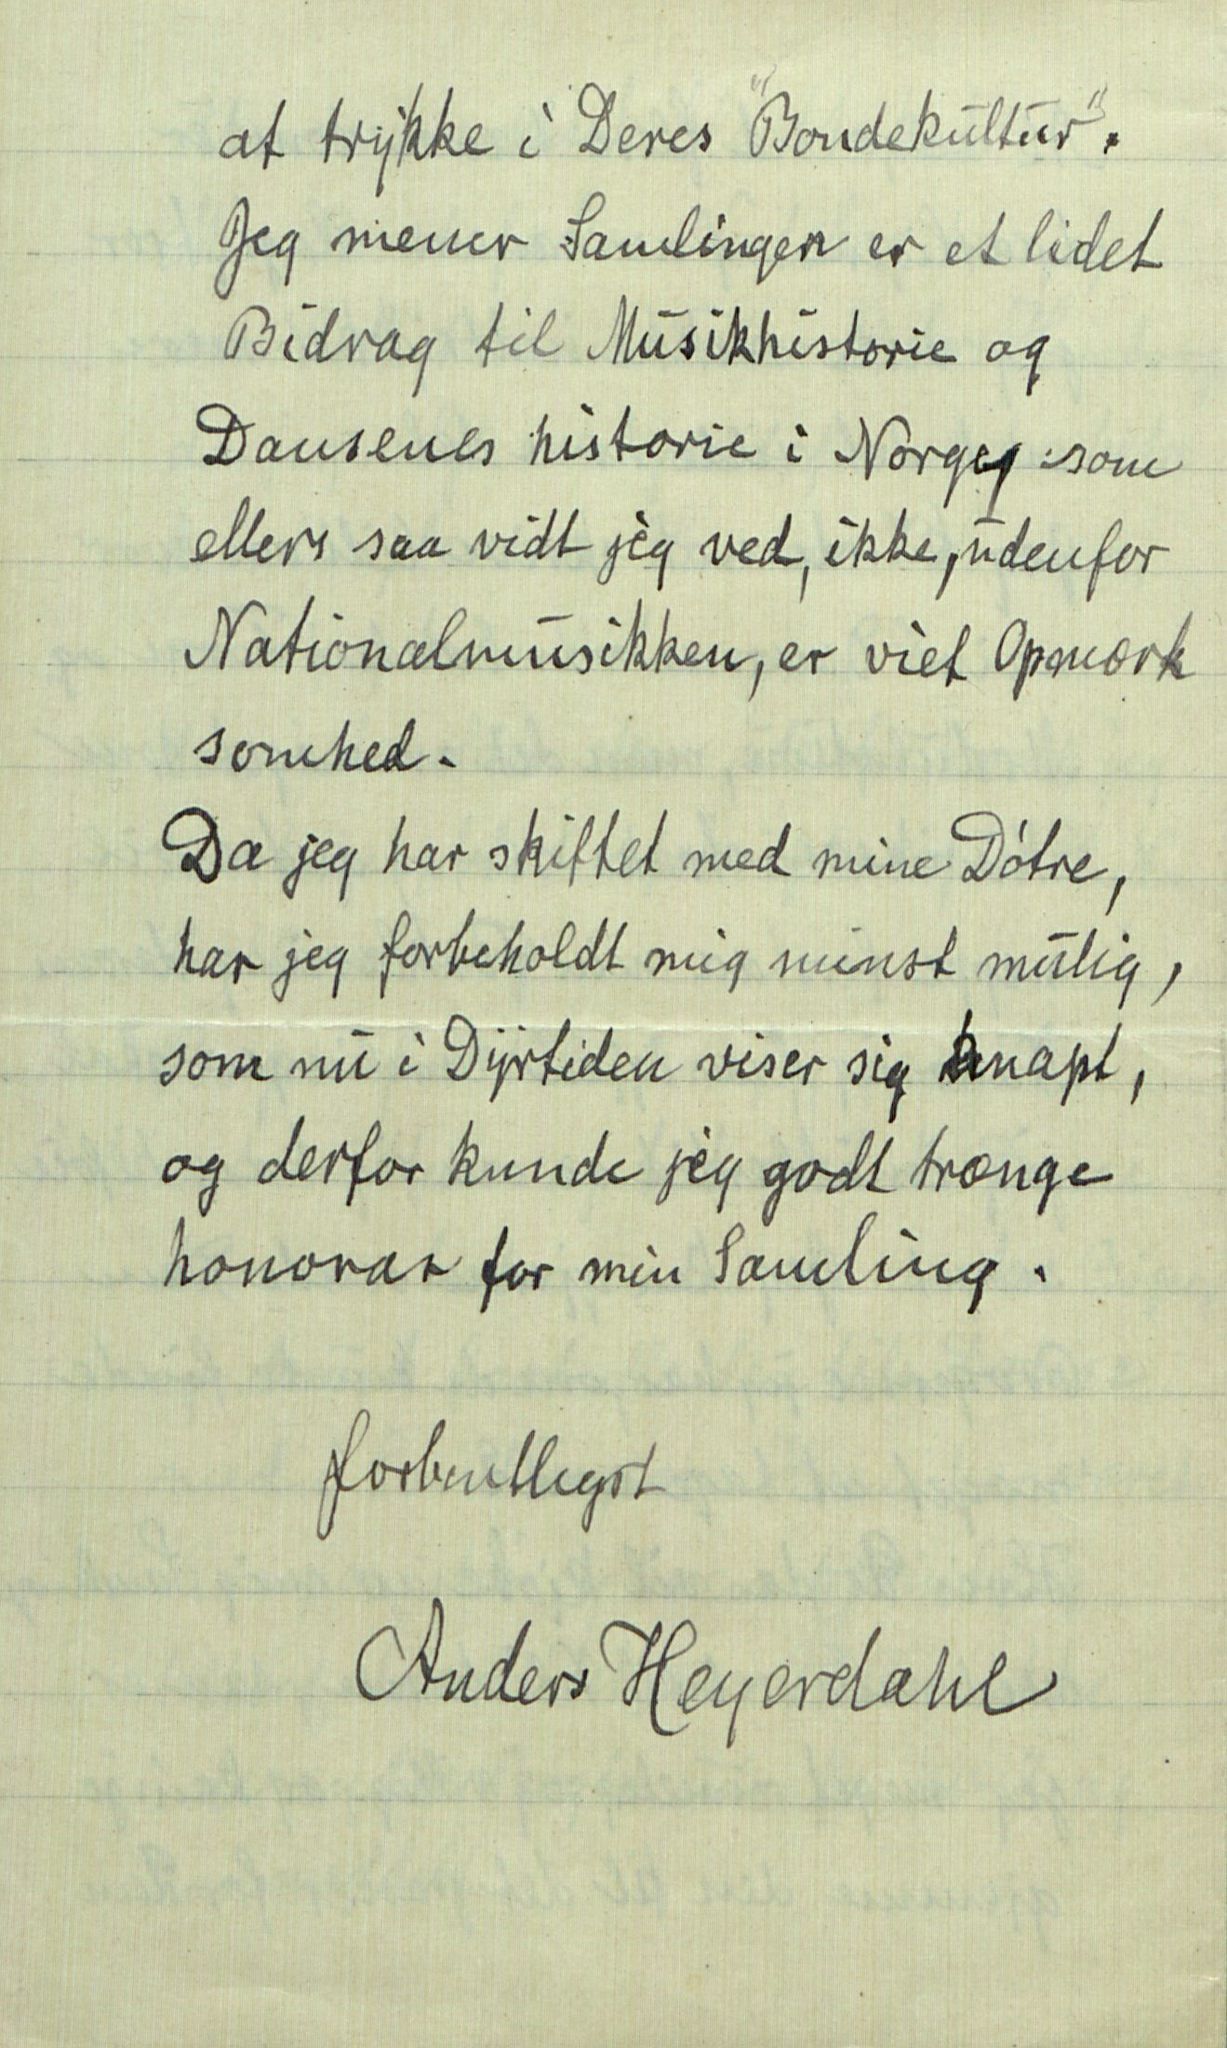 at trykke i Deres "Bondekultur".
Jeg mener Samlingen er et lidet
Bidrag til Musikhistorie og
Dansenes historie i Norge, som
ellers saa vidt jeg ved, ikke, udenfor
Nationalmusikken, er viet Opmærk
somhed.
Da jeg har skiftet med mine Dótre,
har jeg forbeholdt mig minst mulig,
som nu i Dyrtiden viser sig knapt,
og derfor kunde jeg godt trænge
honorar for min Samling.
forbentligst
Anders Heyerdahl